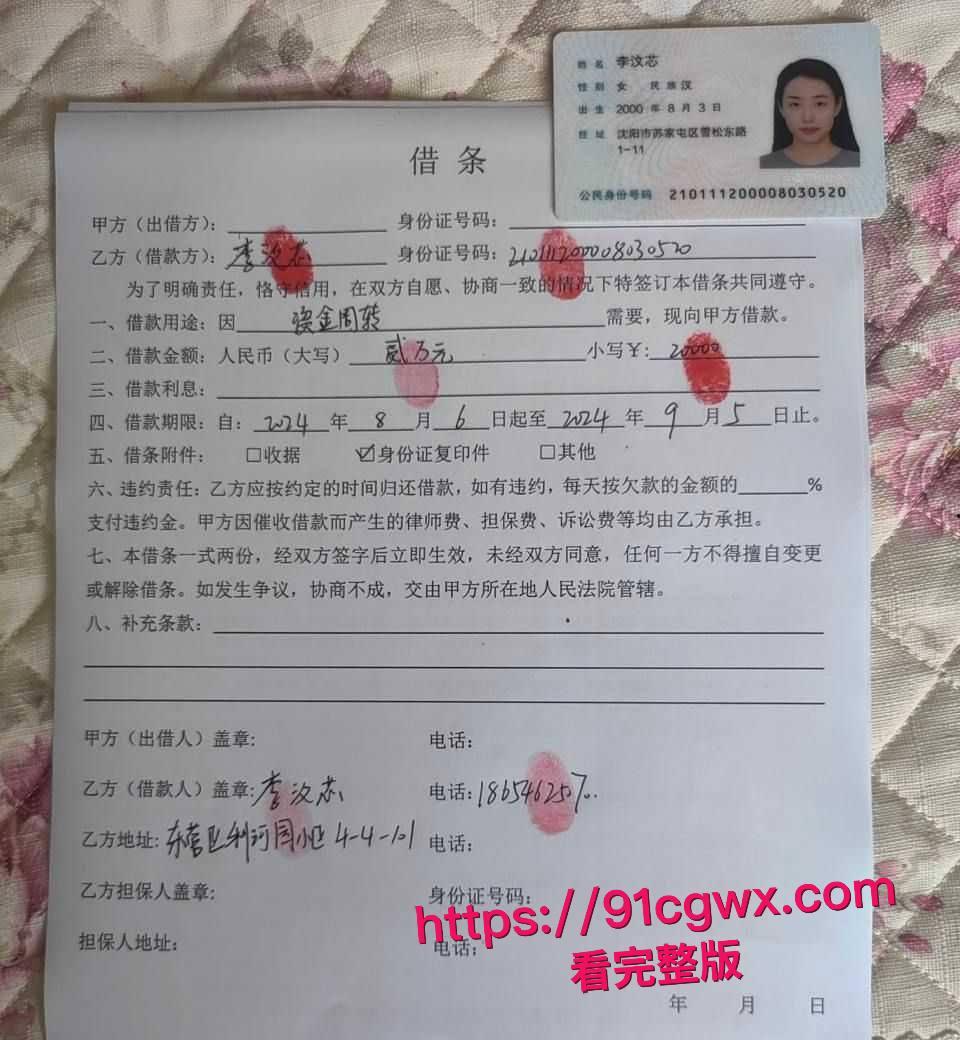 姓名 [已略]
性别 女 民族 汉
出生 [已略]
住址 [已略]
公民身份号码 [已略]
借条
甲方（出借方）： 身份证号码：
乙方（借款方）：[已略] 身份证号码：[已略]
为了明确责任，恪守信用，在双方自愿、协商一致的情况下特签订本借条共同遵守。
一、借款用途：因 资金周转 需要，现向甲方借款。
二、借款金额：人民币（大写） 贰万元 小写￥：20000
三、借款利息：
四、借款期限：自：2024 年 8 月 6 日起至 2024 年 9 月 5 日止。
五、借条附件： □收据 ☑身份证复印件 □其他
六、违约责任：乙方应按约定的时间归还借款，如有违约，每天按欠款的金额的______%
支付违约金。甲方因催收借款而产生的律师费、担保费、诉讼费等均由乙方承担。
七、本借条一式两份，经双方签字后立即生效，未经双方同意，任何一方不得擅自变更
或解除借条。如发生争议，协商不成，交由甲方所在地人民法院管辖。
八、补充条款：
甲方（出借人）盖章: 电话：
乙方（借款人）盖章: [已略] 电话: [已略]
乙方地址: [已略] 电话：
乙方担保人盖章： 身份证号码：
担保人地址： 电话：
[已略]
看完整版
年 月 日